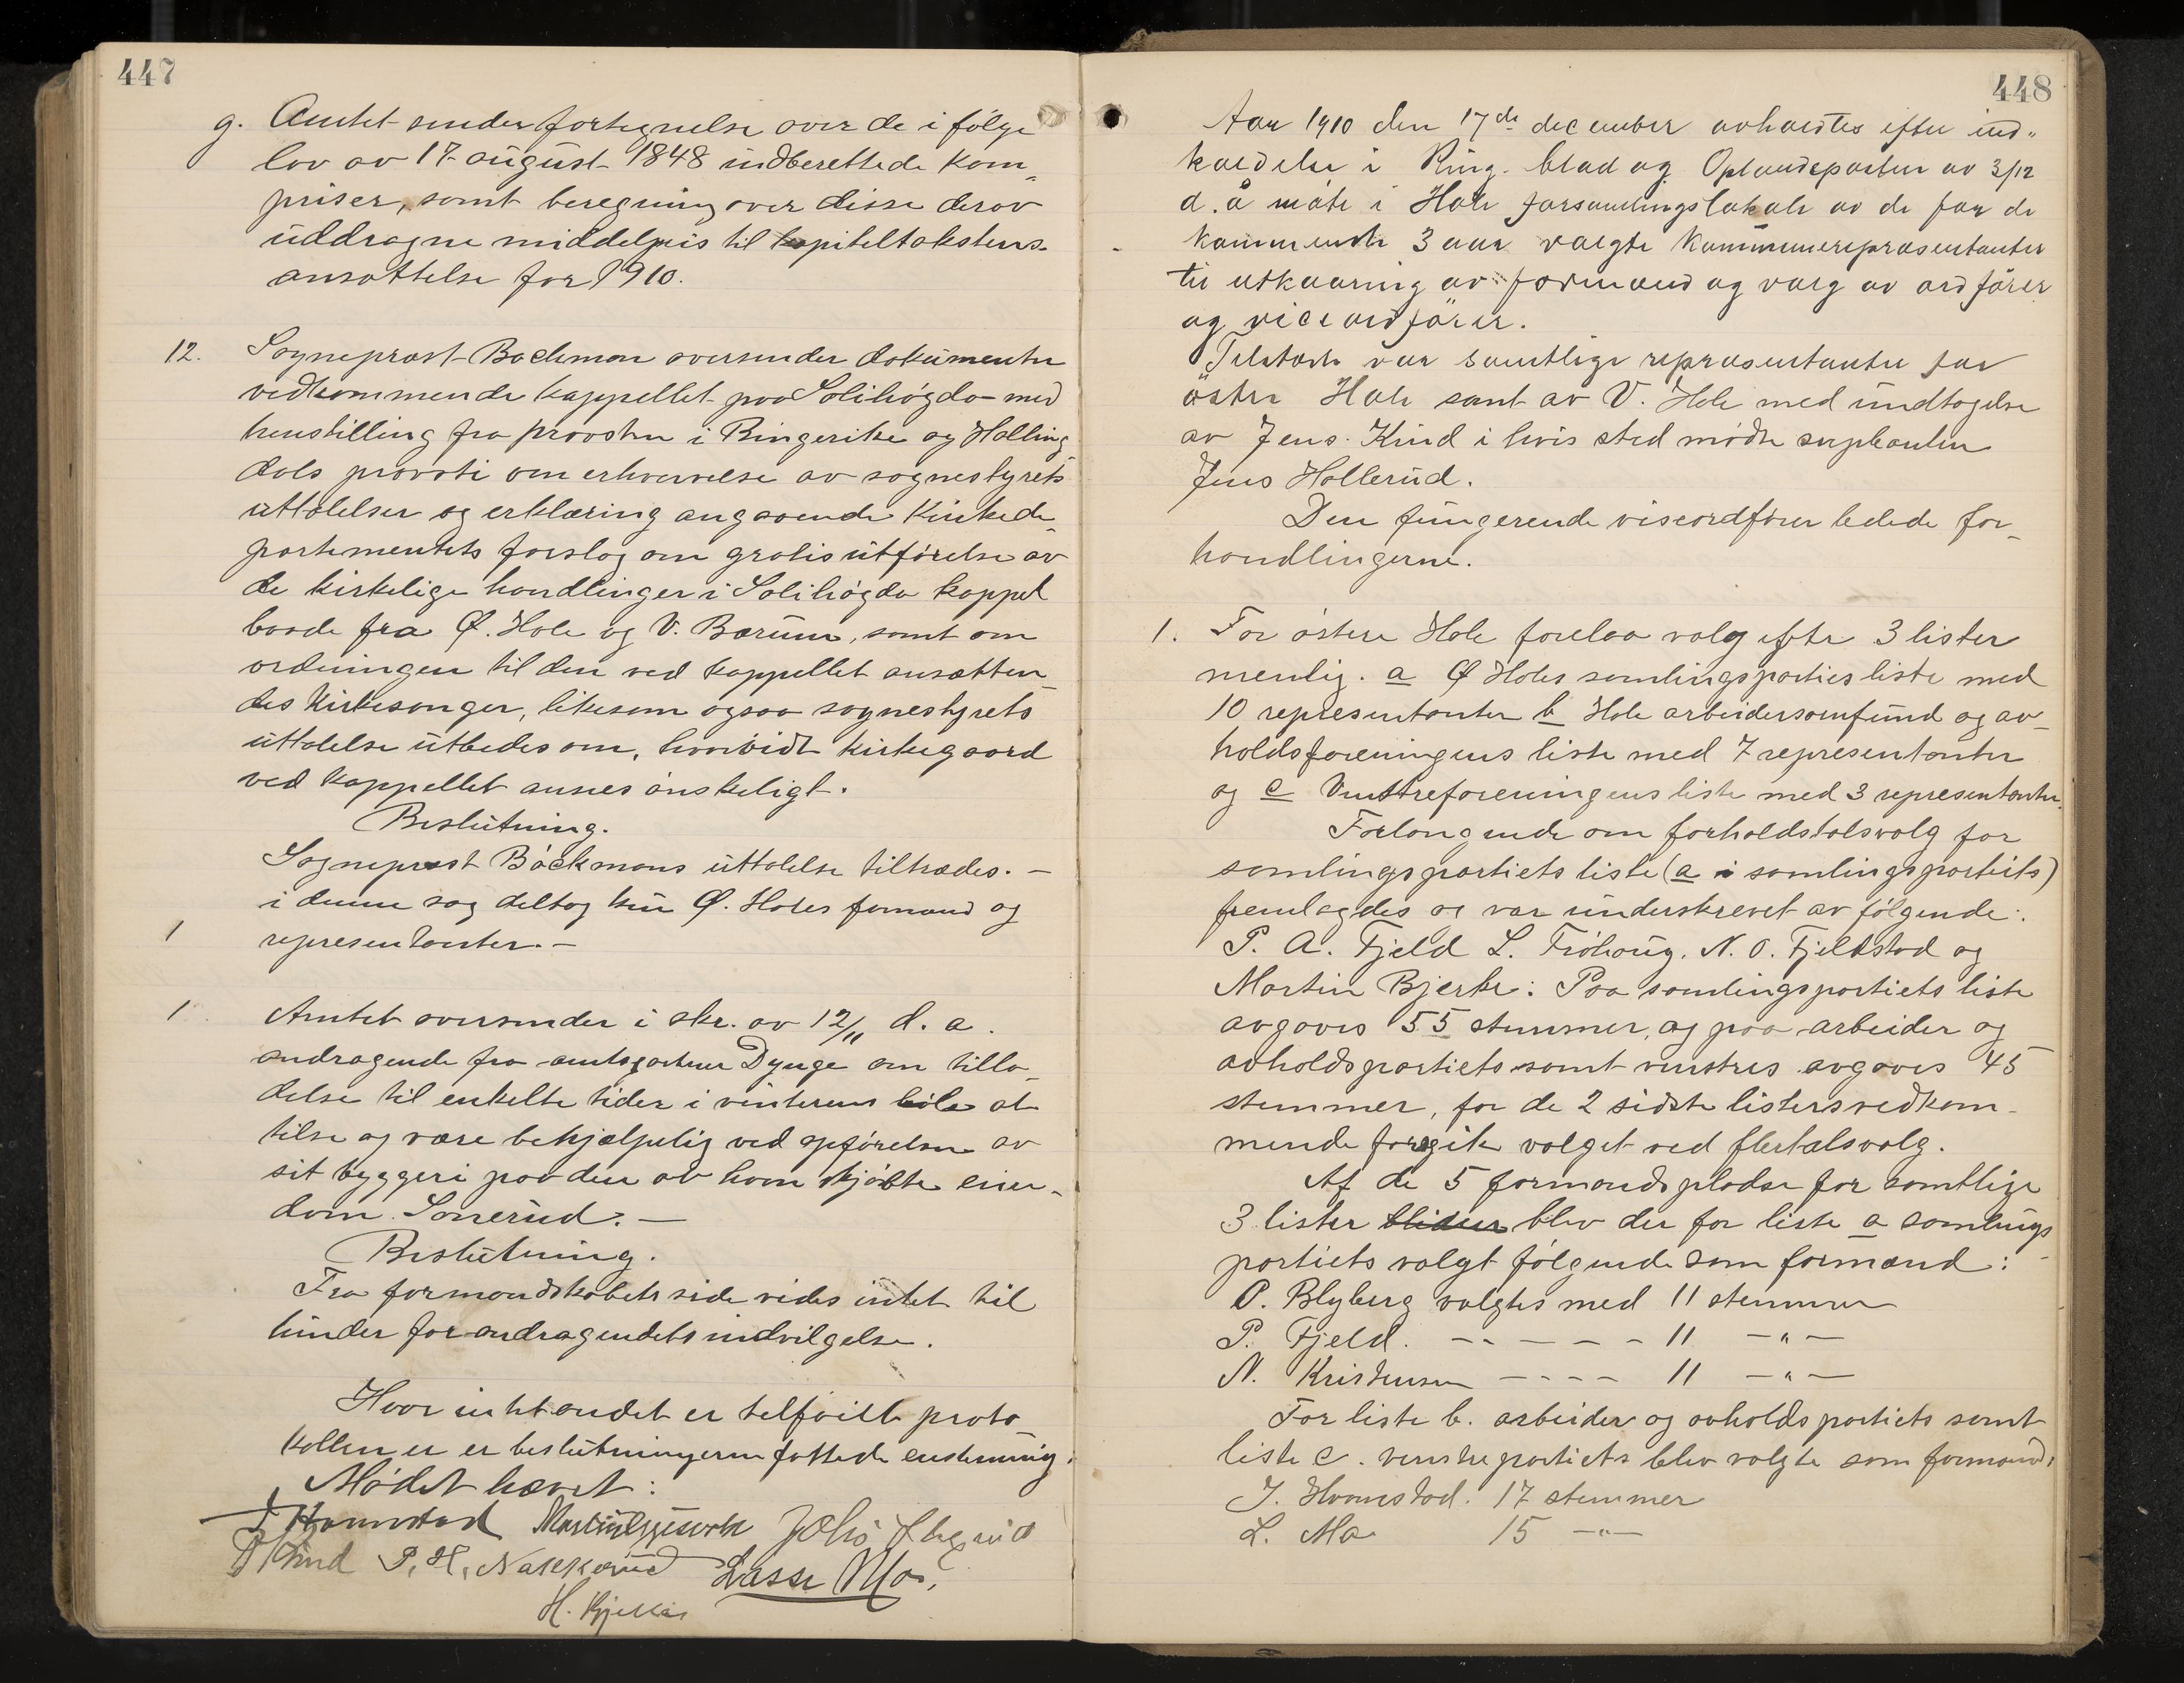 447
g. Amtet sender fortegnelse over de i følge
lov av 17 august 1848 indberettede korn-
priser, samt beregning over disse derav
uddragne middelpris til kapiteltakstens
ansættelse for 1910.
12. Sogneprest Bøckman oversender dokumenter
vedkommende kappellet paa Solihögda med
henstilling fra provsten i Ringerike og Halling-
dals provsti om erhvervelse av sognestyrets
uttalelser og erklæring angaaende Kirkede-
partementets forslag om gratis utførelse av
de kirkelige handlinger i Solihøgda kappel
baade fra Ø. Hole og V. Bærum, samt om
ordningen til den ved kappellet ansætten-
des Kirkesanger, likesom ogsaa sognestyrets
uttalelse utbedes om, hvorvidt kirkegaard
ved kappellet ansees ønskeligt.
Beslutning.
Sogneprest Bøckmans uttalelse tiltrædes. —
i denne sag deltog kun Ø. Holes formænd og
1 representanter. —
1 Amtet oversender i skr. av 12/11 d. a.
andragende fra amtsgartner Dynge om tilla-
delse til enkelte tider i vinterens løb at
tilse og være behjælpelig ved opførelsen av
sit byggeri paa den av ham kjøbte eien-
dom Sonerud. —
Beslutning.
Fra formandskabets side vides intet til
hinder for andragendets indvilgelse.
Hvor intet andet er tilføiet proto-
kollen er beslutningerne fattede enstemmig.
Mødet hævet:
J Hurumstad
P. H. Nakkerud Lasse Mo.
H. Bjelkås
448
Aar 1910 den 17de december avholdtes efter ind-
kaldelse i Ring. blad og Oplandsposten av 3/12
d. å møte i Hole forsamlingslokale av de for de
kommende 3 aar valgte Kommunerepræsentanter
til utkaaring av formænd og valg av ordfører
og viceordfører.
Tilstede var samtlige repræsentanter for
østre Hole samt av V. Hole med undtagelse
av Jens Kind i hvis sted mødte suplanten
Jens Hollerud.
Den fungerende viseordfører ledede for-
handlingerne.
1. For østere Hole forelaa valg efter 3 lister
nemlig. a Ø Holes samlingsparties liste med
10 representanter b Hole arbeidersamfund og av-
holdsforeningens liste med 7 representanter
og c Venstreforeningens liste med 3 representanter.
Forlangende om forholdstalsvalg for
samlingspartiets liste (a samlingspartiets)
fremlagdes og var underskrevet av følgende:
P. A. Fjeld L. Frøhaug. N. O. Fjeldstad og
Martin Bjerke: Paa samlingspartiets liste
avgaves 55 stemmer, og paa arbeider og
avholdspartiets samt venstres avgaves 45
stemmer, for de 2 sidste listers vedkom-
mende foregik valget ved flertalsvalg.
Af de 5 formandspladse for samtlige
3 lister blev der for liste a samlings
partiets valgt følgende som formænd:
P. Blyberg valgtes med 11 stemmer
P. Fjeld. — — — — - 11 — " —
N. Kristensen — - - — 11 — " —
For liste b. arbeider og avholdspartiets samt
liste c. venstrepartiets blev valgte som formænd:
J. Hurumstad. 17 stemmer
L. Mo 15 — " —